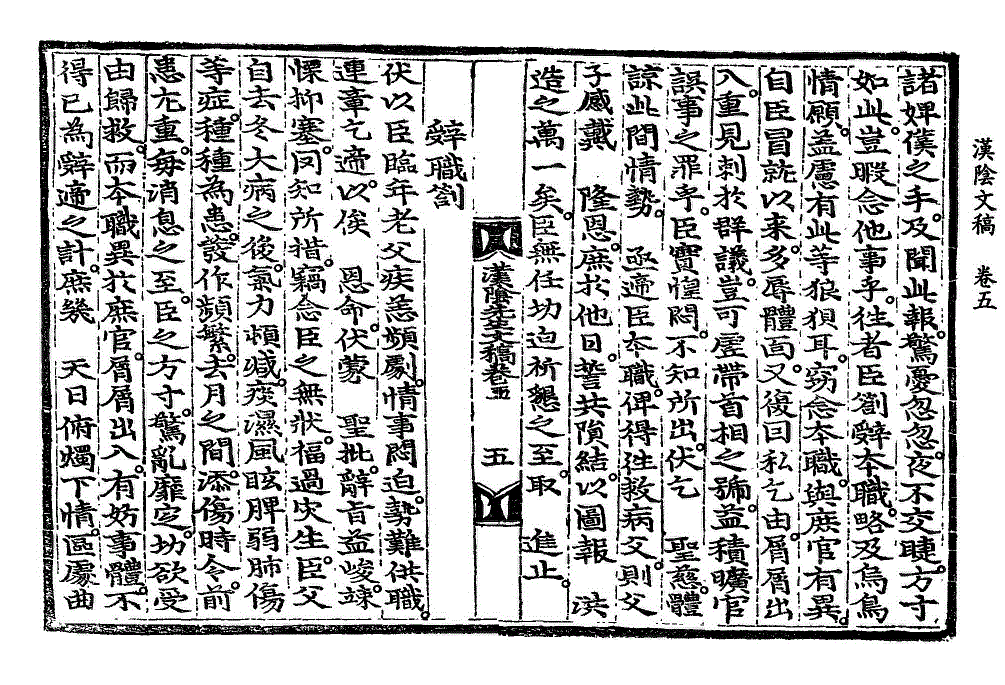 漢陰文稿 卷五
諸婢僕之手及聞此報驚憂忽忽夜不交睫方寸
如此豈暇念他事乎往者臣劄辭本職略及烏鳥
情願盖慮有此等狼狽耳窃念本職與庶官有異
自臣冒就以来多辱體面又復回私乞由屑屑出
入重見刺於群議豈可虛帶首相之號益積曠官
誤事之罪乎臣實惶悶不知所出伏乞 聖慈體
諒此間情勢 亟遞臣本職俾得徃救病父則父
子感戴 隆恩庶於他日誓共隕結以圖報 洪
造之萬一矣臣無任切迫祈懇之至取 進止
漢陰先生文稿卷五 五
辭職劄
伏以臣臨年老父疾恙頻劇情事悶迫勢難供職
連章乞遞以俟 恩命伏蒙 聖批辭旨益峻竦
慄抑塞罔知所措竊念臣之無狀福過灾生臣父
自去冬大病之後氣力頓减痰濕風眩脾弱肺傷
等症種種為患發作頻繁去月之間添傷時令前
患尤重每消息之至臣之方寸驚亂靡定切欲受
由歸救而本職異於庶官屑屑出入有妨事體不
得已為辭遞之計庶幾 天日俯燭下情區處曲